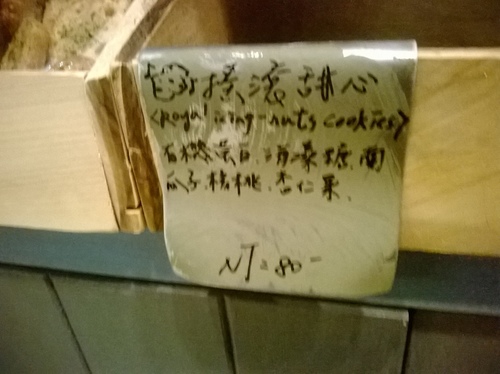 滾甜心
<Royal icing-nuts cookies>
有機蛋白.海藻糖.南
瓜子.核桃.杏仁果.
NT=80-